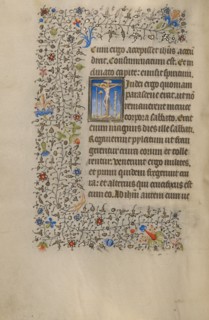 Cum ergo accepisset ihūs acetū
dixit. Consummatum est. Et in
clinato capite: emisit spiritum.
Iudei ergo quoniam
parasceue erat: ut nō
remanerent in cruce
corpora sabbato. Erat
enim magnus dies ille sabbati.
Rogauerunt pylatum ut fran
gerentur eorum crura et tolle
rentur. Venerunt ergo milites,
et primi quidem fregerunt cru
ra: et alterius qui crucifixus est
cum eo. Ad ihūm autem cum ue